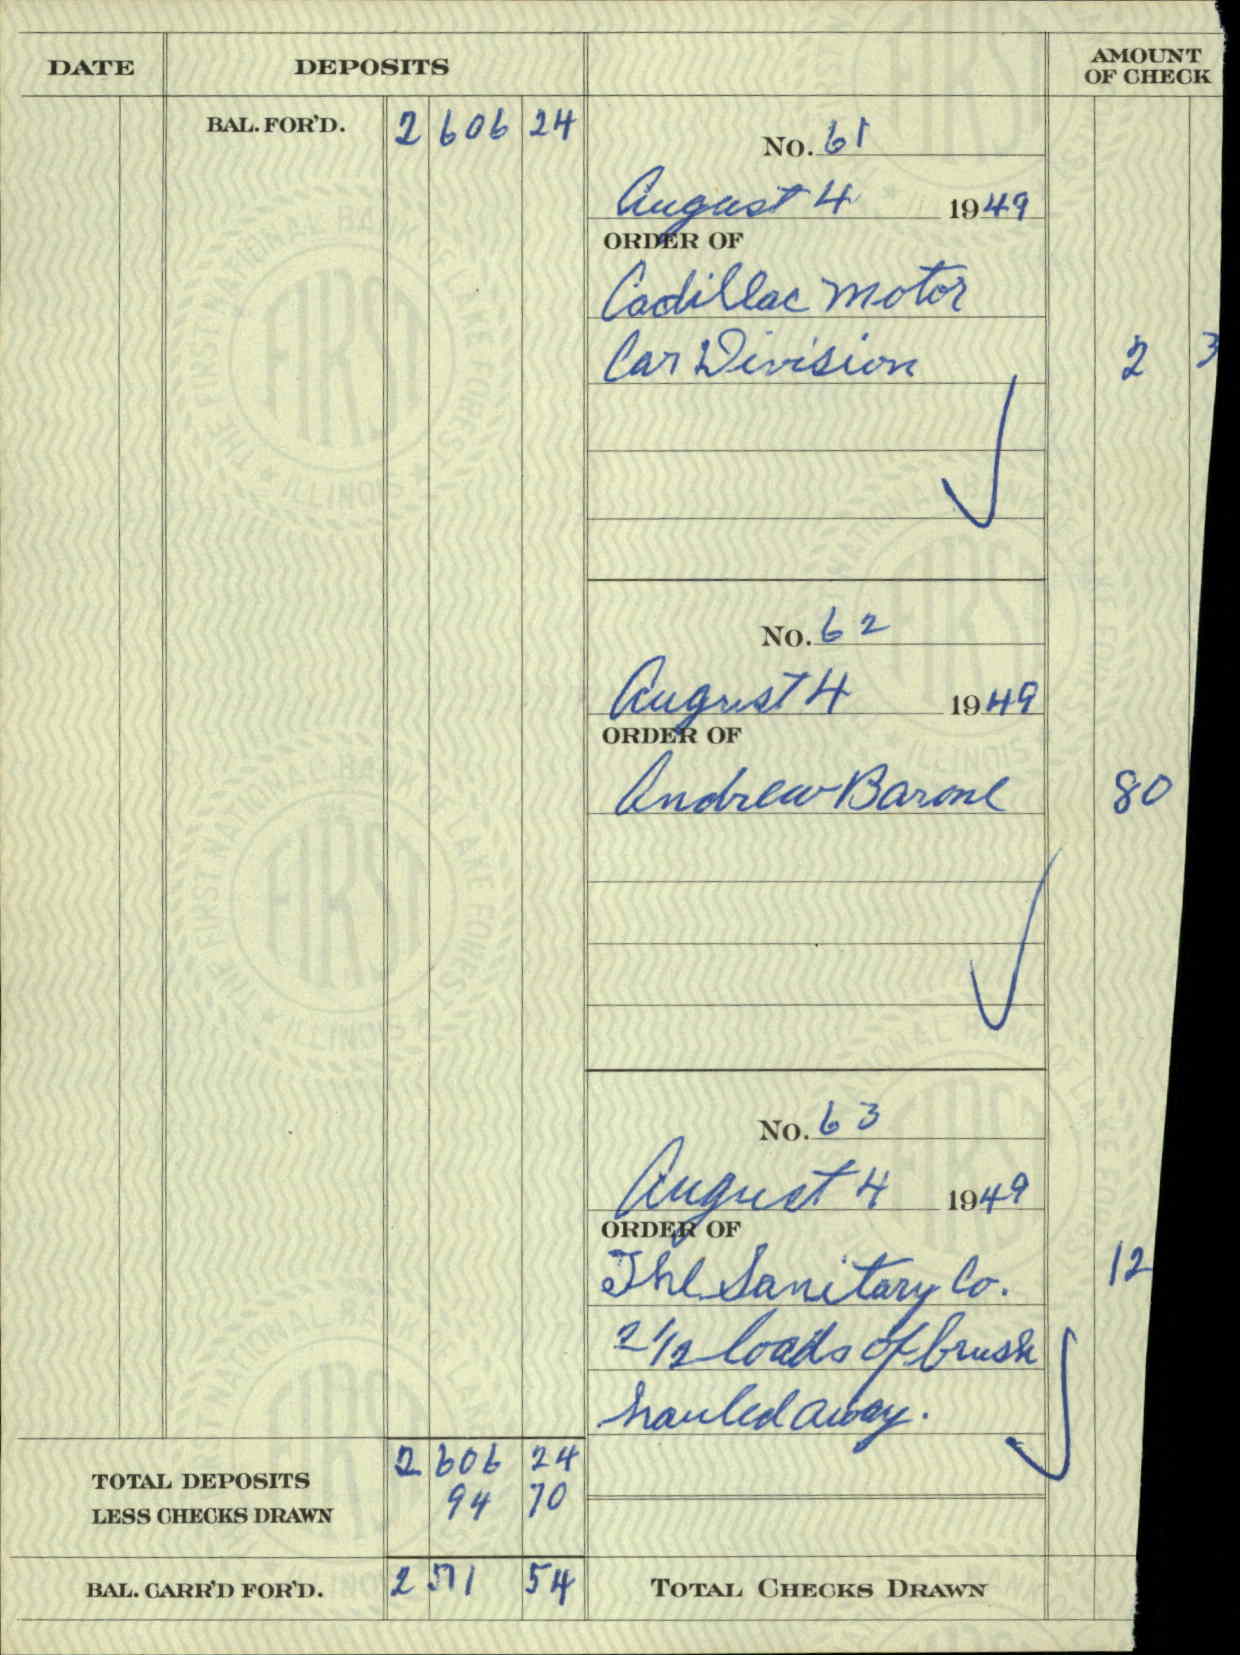 DATE DEPOSITS AMOUNT OF CHECK
BAL. FOR'D. 2 606 24
No. 61
August 4 1949
ORDER OF
Cadillac Motor
Car Division 2 3
No. 62
August 4 1949
ORDER OF
Andrew Barone 80
No. 63
August 4 1949
ORDER OF
The Sanitary Co. 12
2 1/2 loads of brush
hauled away.
TOTAL DEPOSITS 2 606 24
LESS CHECKS DRAWN 94 70
BAL. CARR'D FOR'D. 2 511 54 TOTAL CHECKS DRAWN
THE FIRST NATIONAL BANK OF LAKE FOREST
FIRST
ILLINOIS